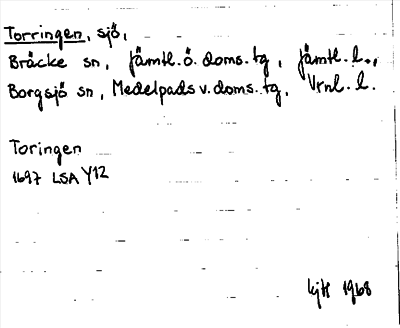 Torringen, sjö,
Bräcke sn, Jämtl. ö. doms. tg, Jämtl. l.,
Borgsjö sn, Medelpads v. doms. tg, Vrnl. l.
Toringen
1697 LSA Y12
kjH 1968